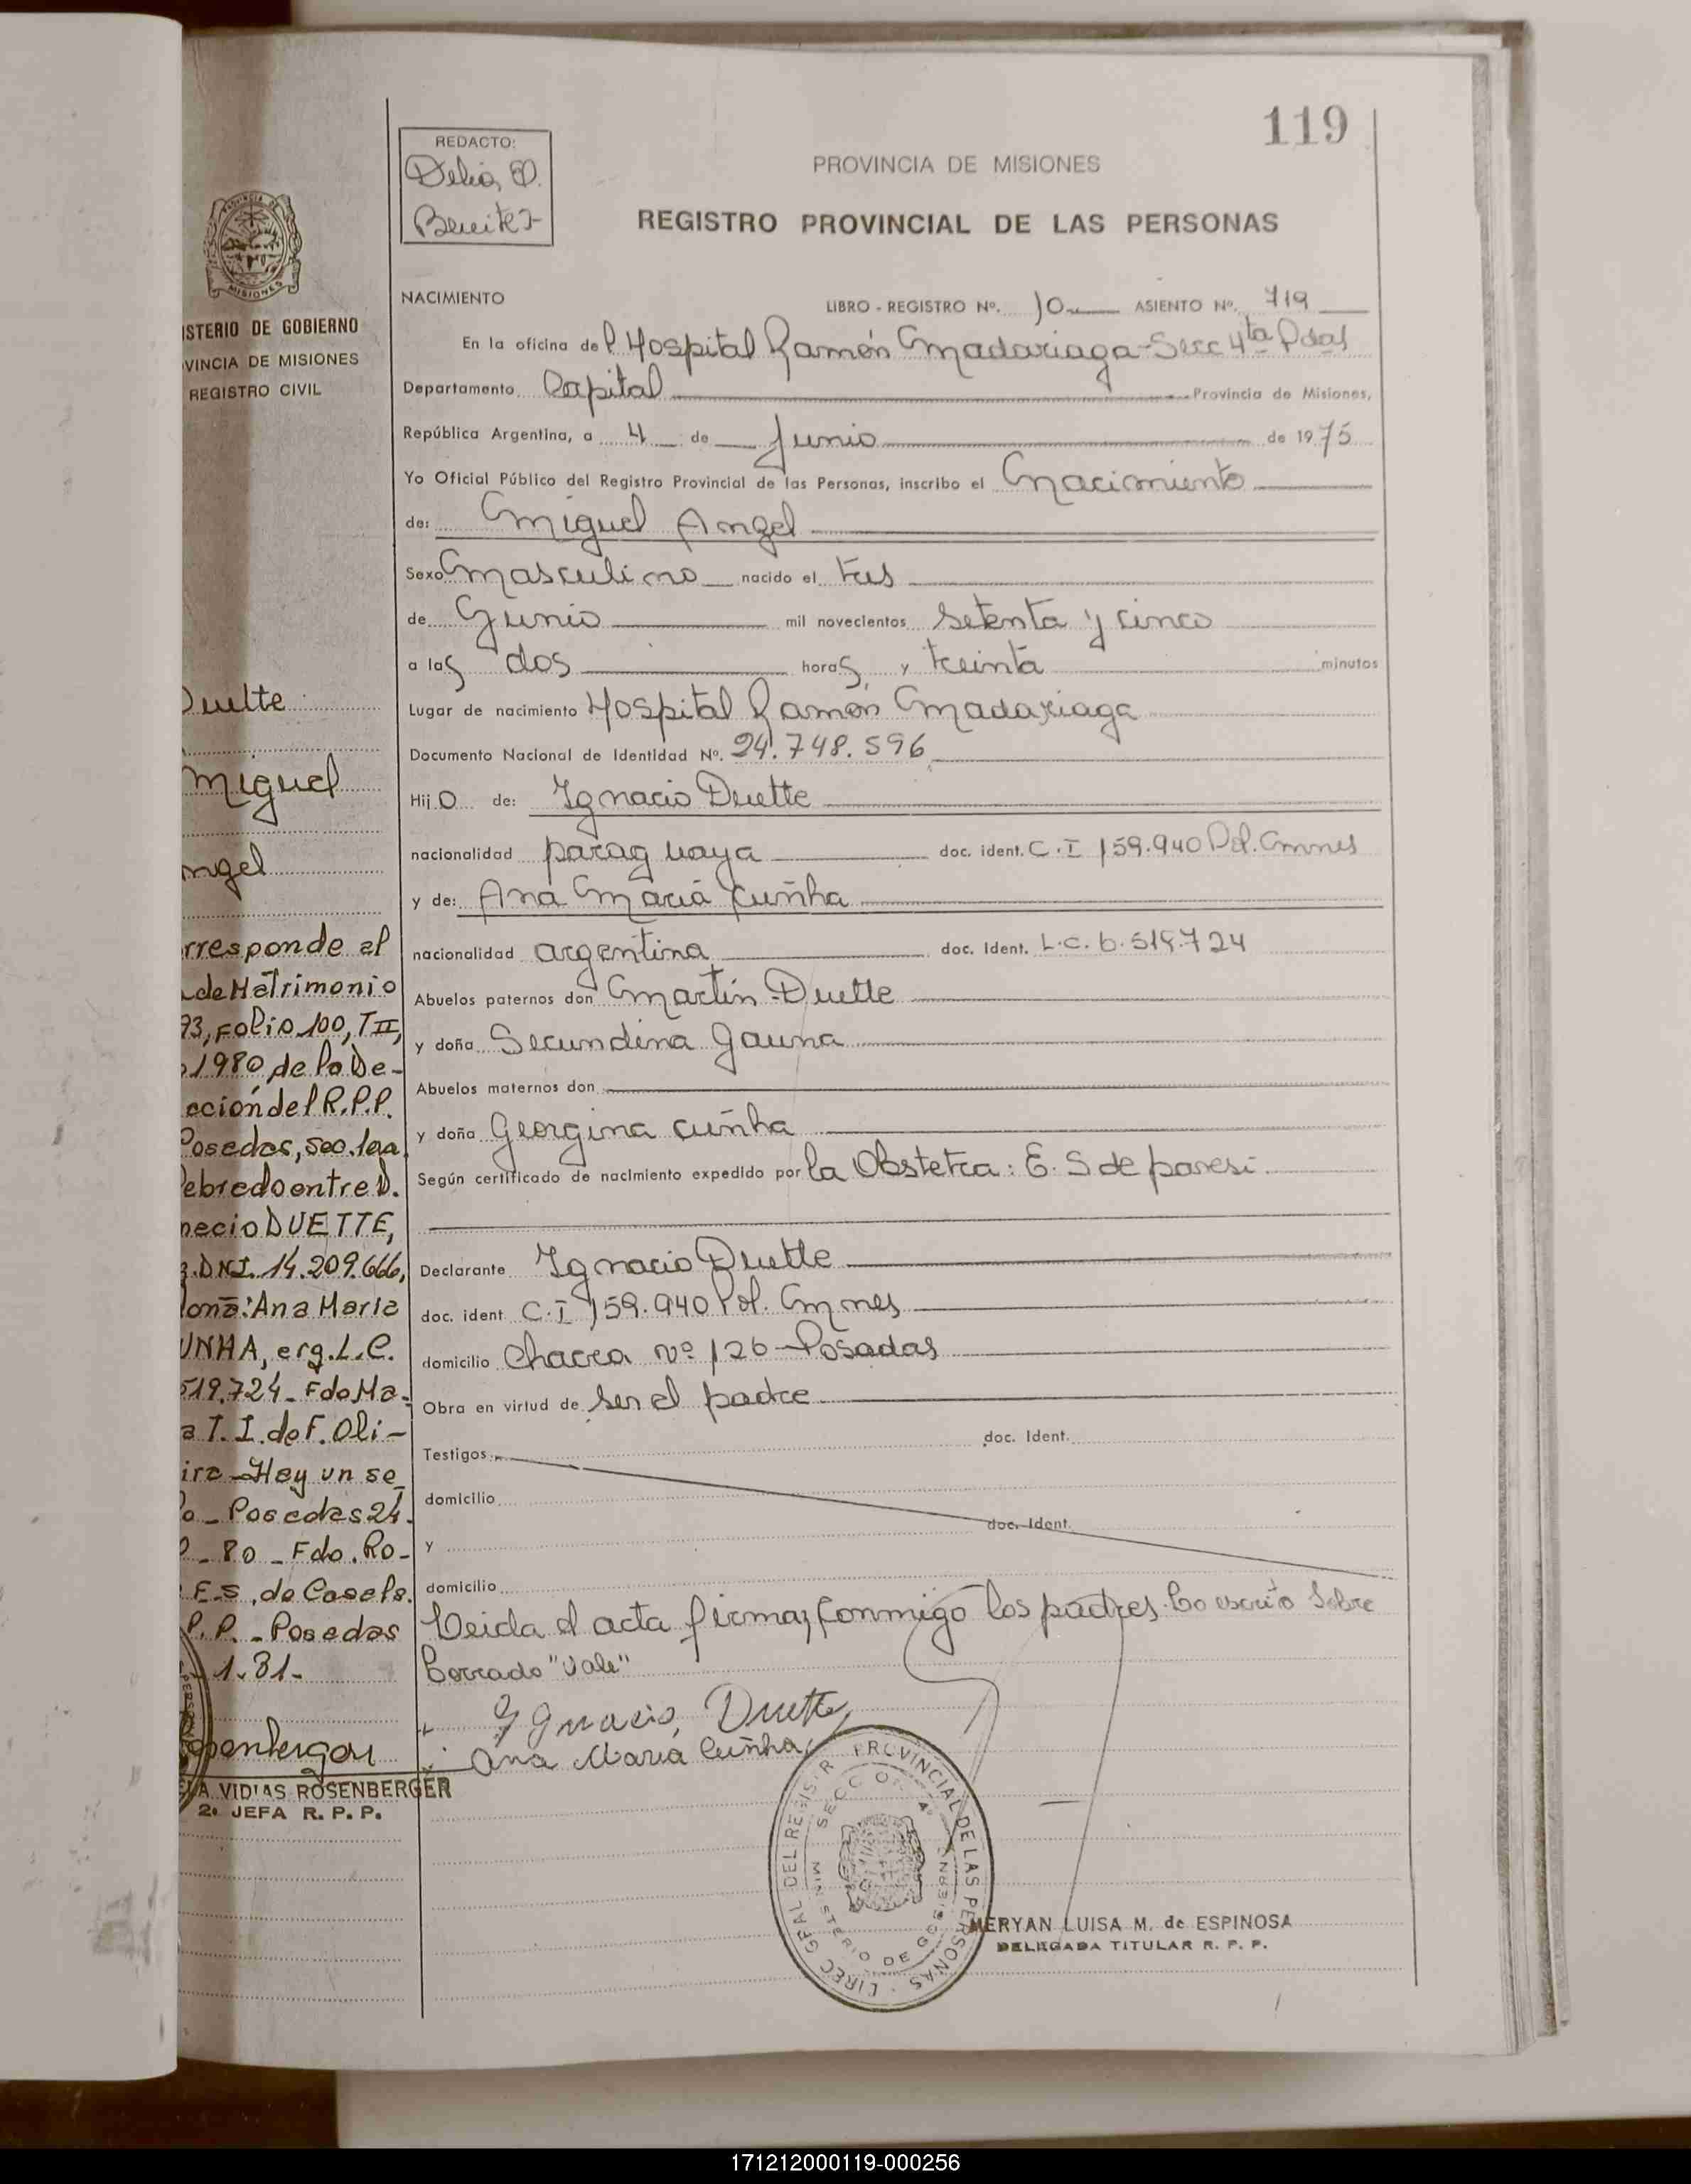 119
REDACTO:
Delia
Benitez
PROVINCIA DE MISIONES
REGISTRO PROVINCIAL DE LAS PERSONAS
PROVINCIA DE
MISIONES
ISTERIO DE GOBIERNO
VINCIA DE MISIONES
REGISTRO CIVIL
NACIMIENTO LIBRO - REGISTRO Nº. 10 ASIENTO Nº. 719
En la oficina del Hospital Ramón Madariaga - Secc 4ta Pdas
Departamento Capital Provincia de Misiones,
República Argentina, a 4 de Junio de 1975
Yo Oficial Público del Registro Provincial de las Personas, inscribo el nacimiento
de: Miguel Angel
Sexo masculino nacido el tres
de Junio mil novecientos setenta y cinco
a las dos horas, y treinta minutos
Lugar de nacimiento Hospital Ramón Madariaga
Documento Nacional de Identidad Nº. 24.748.596
Hijo de: Ignacio Duette
nacionalidad paraguaya doc. ident. C.I 159.940 Pol. Mnes
y de: Ana María Cunha
nacionalidad argentina doc. Ident. L.C. 6.519.724
Abuelos paternos don Martín Duette
y doña Secundina Gauna
Abuelos maternos don
y doña Georgina Cunha
Según certificado de nacimiento expedido por la Obstetra: E. S de panesi.
Declarante Ignacio Duette
doc. ident. C.I 159.940 Pol. Mnes
domicilio Chacra nº 126 - Posadas
Obra en virtud de ser el padre
Testigos doc. Ident.
domicilio
y doc. Ident.
domicilio
Leida el acta firman conmigo los padres. Lo escrito Sobre
Borrado "Vale"
Ignacio Duette
Ana María Cunha
DIREC GRAL DEL REGISTR PROVINCIAL DE LAS PERSONAS
MINISTERIO DE GOBIERNO
SECC
MERYAN LUISA M. de ESPINOSA
DELEGADA TITULAR R. P. P.
Duette
Miguel
ngel
rresponde al
de Matrimonio
93, Folio 100, T II,
1980 de la De-
ección del R.P.P.
Posadas, Sec. 1ra
lebrado entre D.
nacio DUETTE,
DNI. 14.209.666,
doña: Ana Maria
UNHA, arg. L.C.
519.724 - Fdo Ma-
a T. I. de F. Oli-
ira - Hay un se
lo - Posadas 24.
- 80 - Fdo. Ro-
E.S. de Casals.
P.P. - Posadas
- 1.81 -
LA VIDIAS ROSENBERGER
2ª JEFA R. P. P.
171212000119-000256